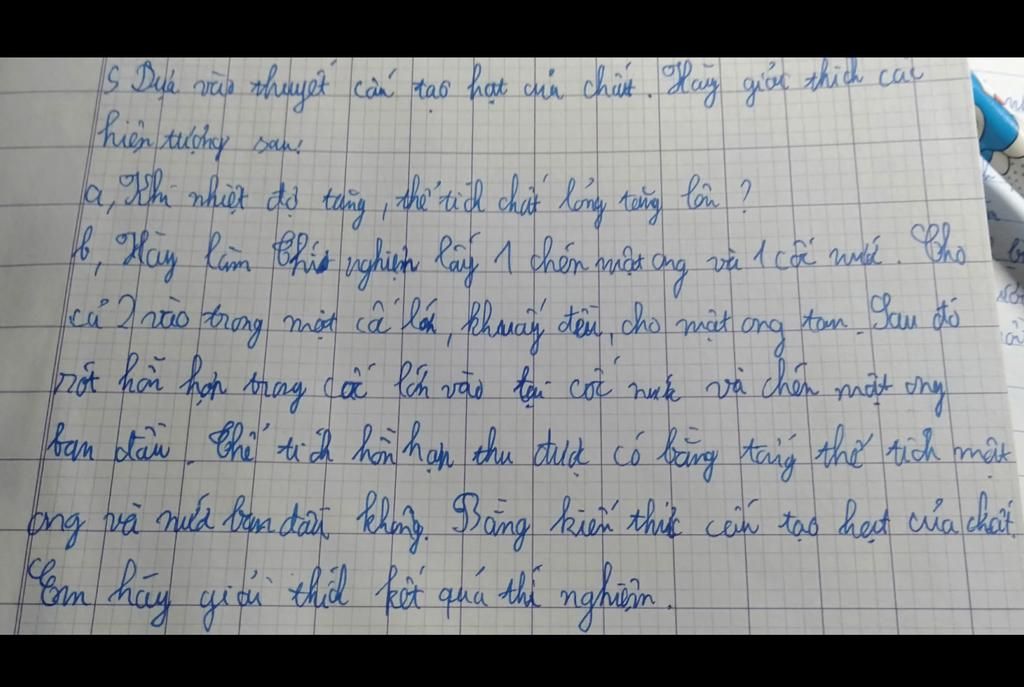 5 Dựa vào thuyết cấu tạo hạt của chất. Hãy giải thích các
hiện tượng sau:
a, Khi nhiệt độ tăng, thể tích chất lỏng tăng lên?
b, Hãy làm thí nghiệm lấy 1 chén mật ong và 1 cốc nước. Cho
cả 2 vào trong một cố lớn, khuấy đều, cho mật ong tan. Sau đó
rót hỗn hợp trong cốc lớn vào lại cốc nước và chén mật ong
ban đầu. Thể tích hỗn hợp thu được có bằng tổng thể tích mật
ong và nước ban đầu không. Bằng kiến thức cấu tạo hạt của chất.
Em hãy giải thích kết quả thí nghiệm.